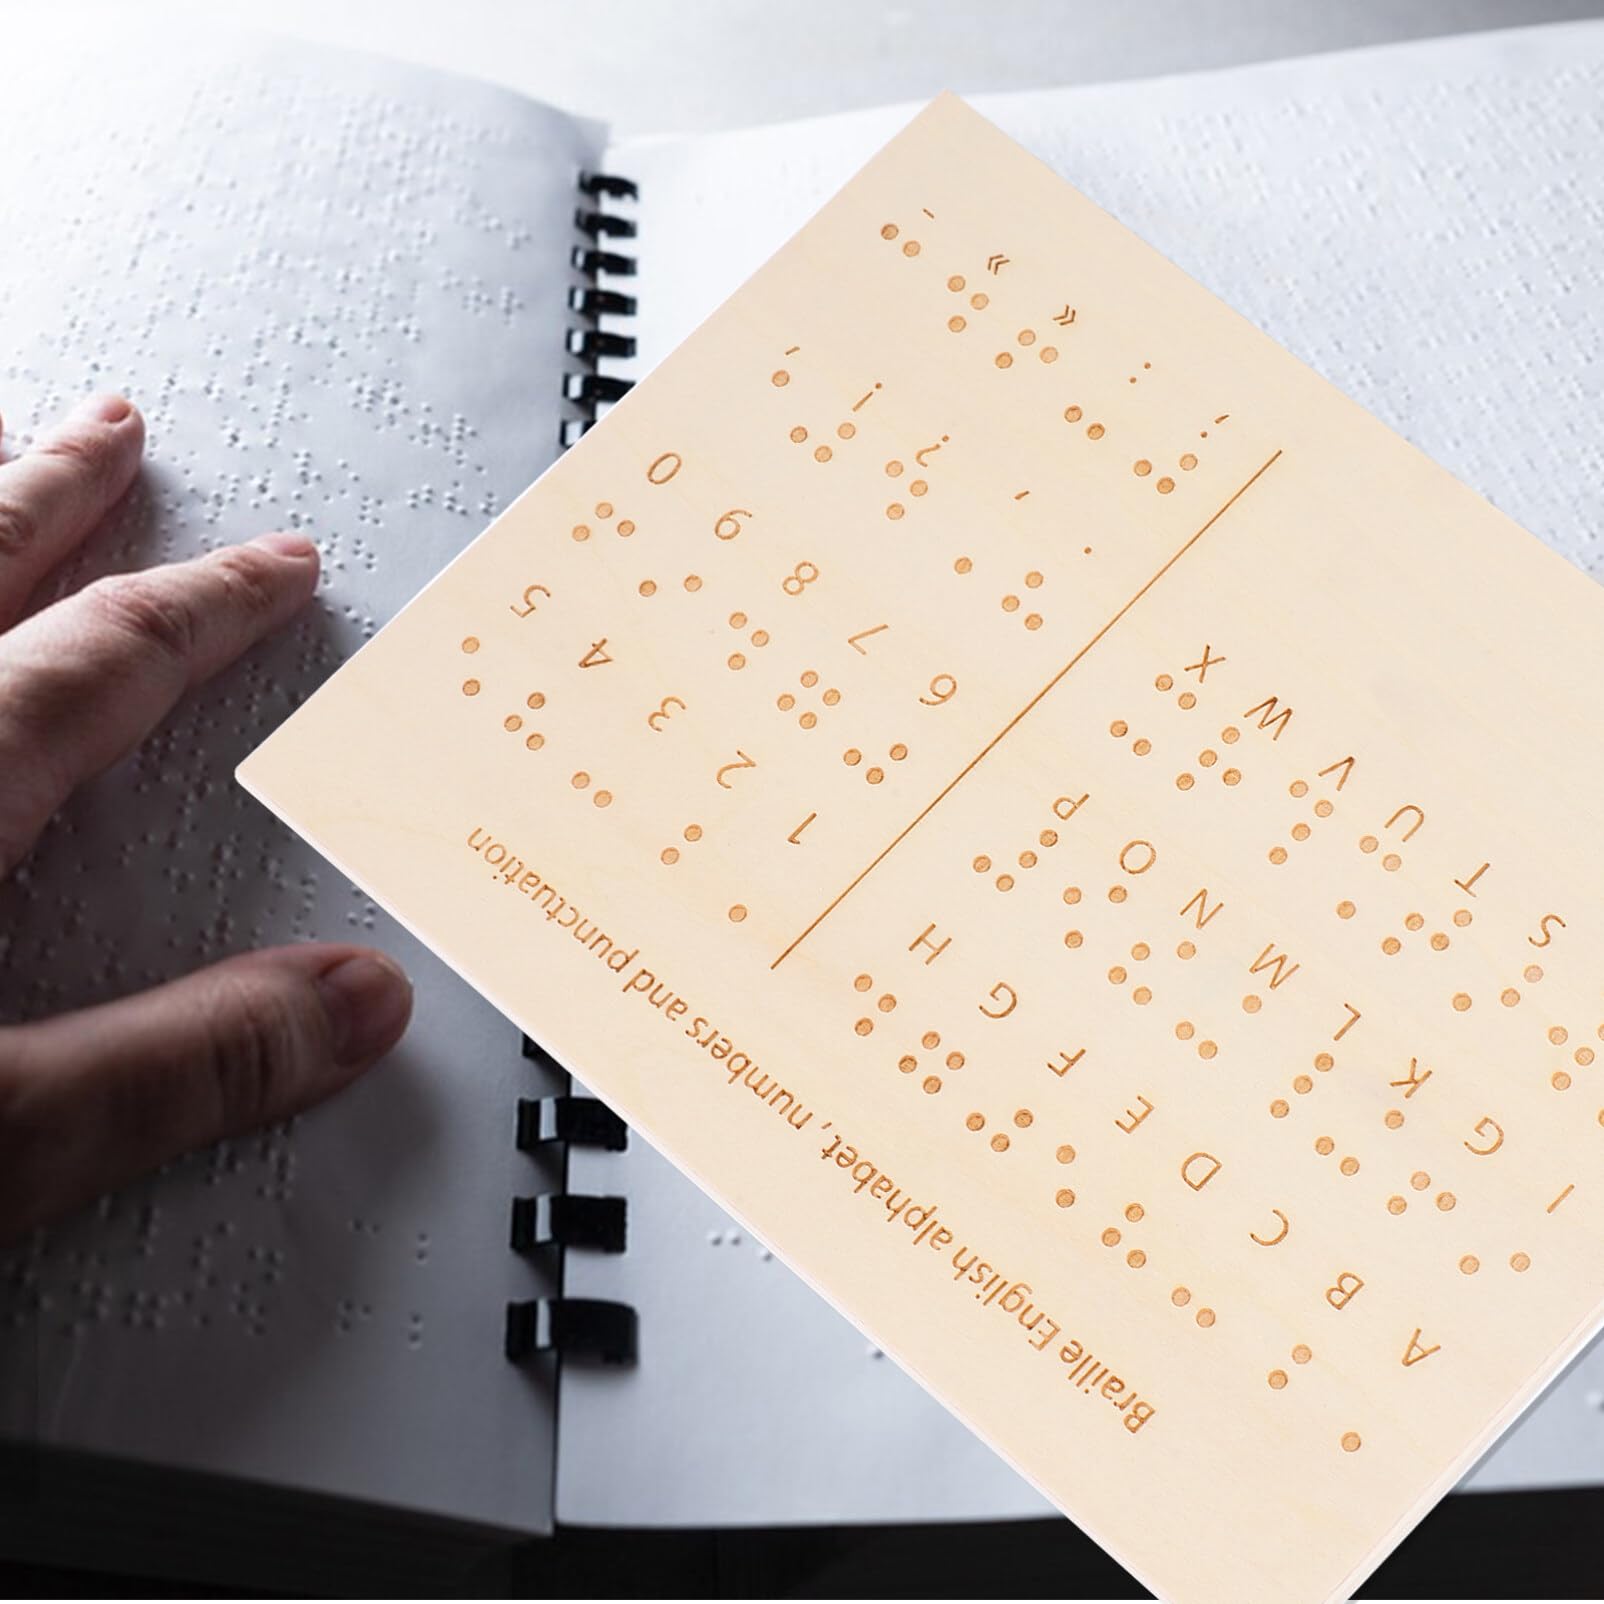 Braille English alphabet, numbers and punctuation
A B C D E F G H
I G K L M N O P
S T U V W X
1 2 3 4 5
6 7 8 9 0
. , ? ! '
; : « » -